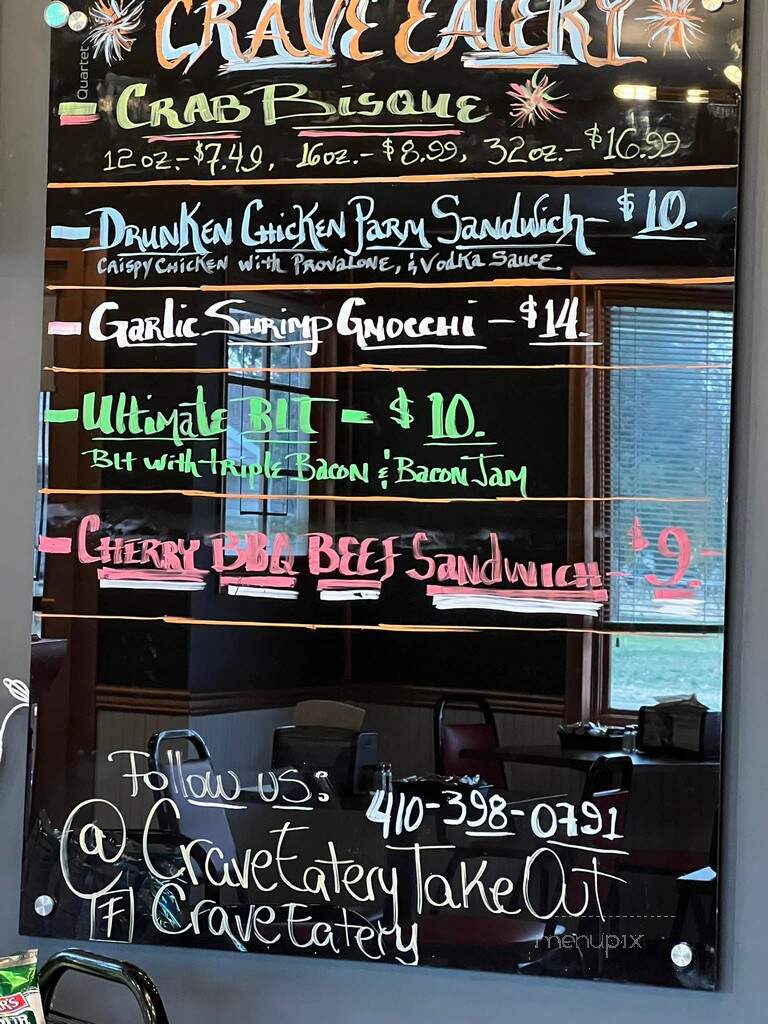 CRAVE EATERY
Quartet
CRAB BISQUE
12oz.-$7.49, 16oz.-$8.99, 32oz.-$16.99
DRUNKEN CHICKEN PARM SANDWICH- $10.
CRISPY CHICKEN with PROVALONE, & Vodka Sauce
GARLIC SHRIMP GNOCCHI - $14.
Ultimate BLT - $10.
Blt with triple Bacon & Bacon Jam
CHERRY BBQ BEEF SANDWICH - $9.-
Follow us:
410-398-0791
@CraveEateryTakeOut
f CraveEatery
menupix